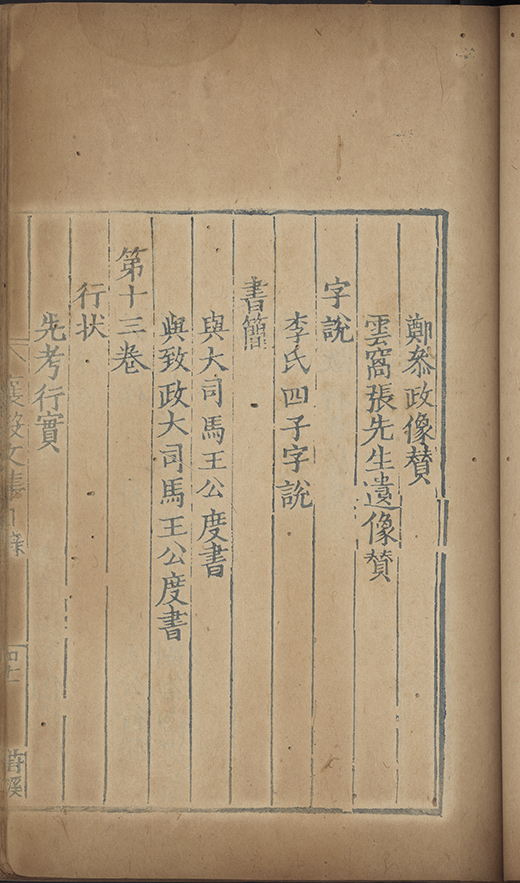 鄭叅政像賛
雲窩張先生遺像賛
字說
李氏四子字說
書簡
與大司馬王公度書
與致政大司馬王公度書
第十三卷
行状
先考行實